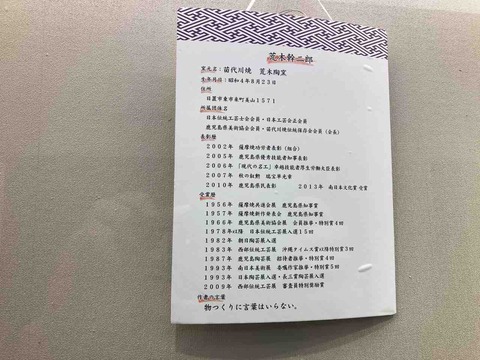 荒木幹二郎
窯元名：苗代川焼　荒木陶窯
生年月日：昭和４年８月２３日
住所
日置市東市来町美山１５７１
所属団体名
日本伝統工芸士会会員・日本工芸会正会員
鹿児島県美術協会会員・苗代川焼伝統保存会会員（会長）
表彰歴
２００２年　薩摩焼功労者表彰（組合）
２００５年　鹿児島県優秀技能者知事表彰
２００６年　「現代の名工」卓越技能者厚生労働大臣表彰
２００７年　秋の叙勲　瑞宝単光章
２０１０年　鹿児島県民表彰　２０１３年　南日本文化賞 受賞
受賞歴
１９５６年　薩摩焼共進会展　鹿児島県知事賞
１９５７年　薩摩焼新作発表会　鹿児島県知事賞
１９６６年　鹿児島県美術協会展　会員推挙・特別賞４回
１９７８年以降　日本伝統工芸展入選１５回
１９８２年　朝日陶芸展入選
１９８３年　西部伝統工芸展　沖縄タイムス賞以降特別賞３回
１９８７年　鹿児島陶芸展　招待者推挙・特別賞４回
１９９３年　南日本美術展　委嘱作家推挙・特別賞５回
１９９３年　日本陶芸展入選・長三賞陶芸展入選
２００９年　西部伝統工芸展　審査員特別奨励賞
作者の言葉
物つくりに言葉はいらない。